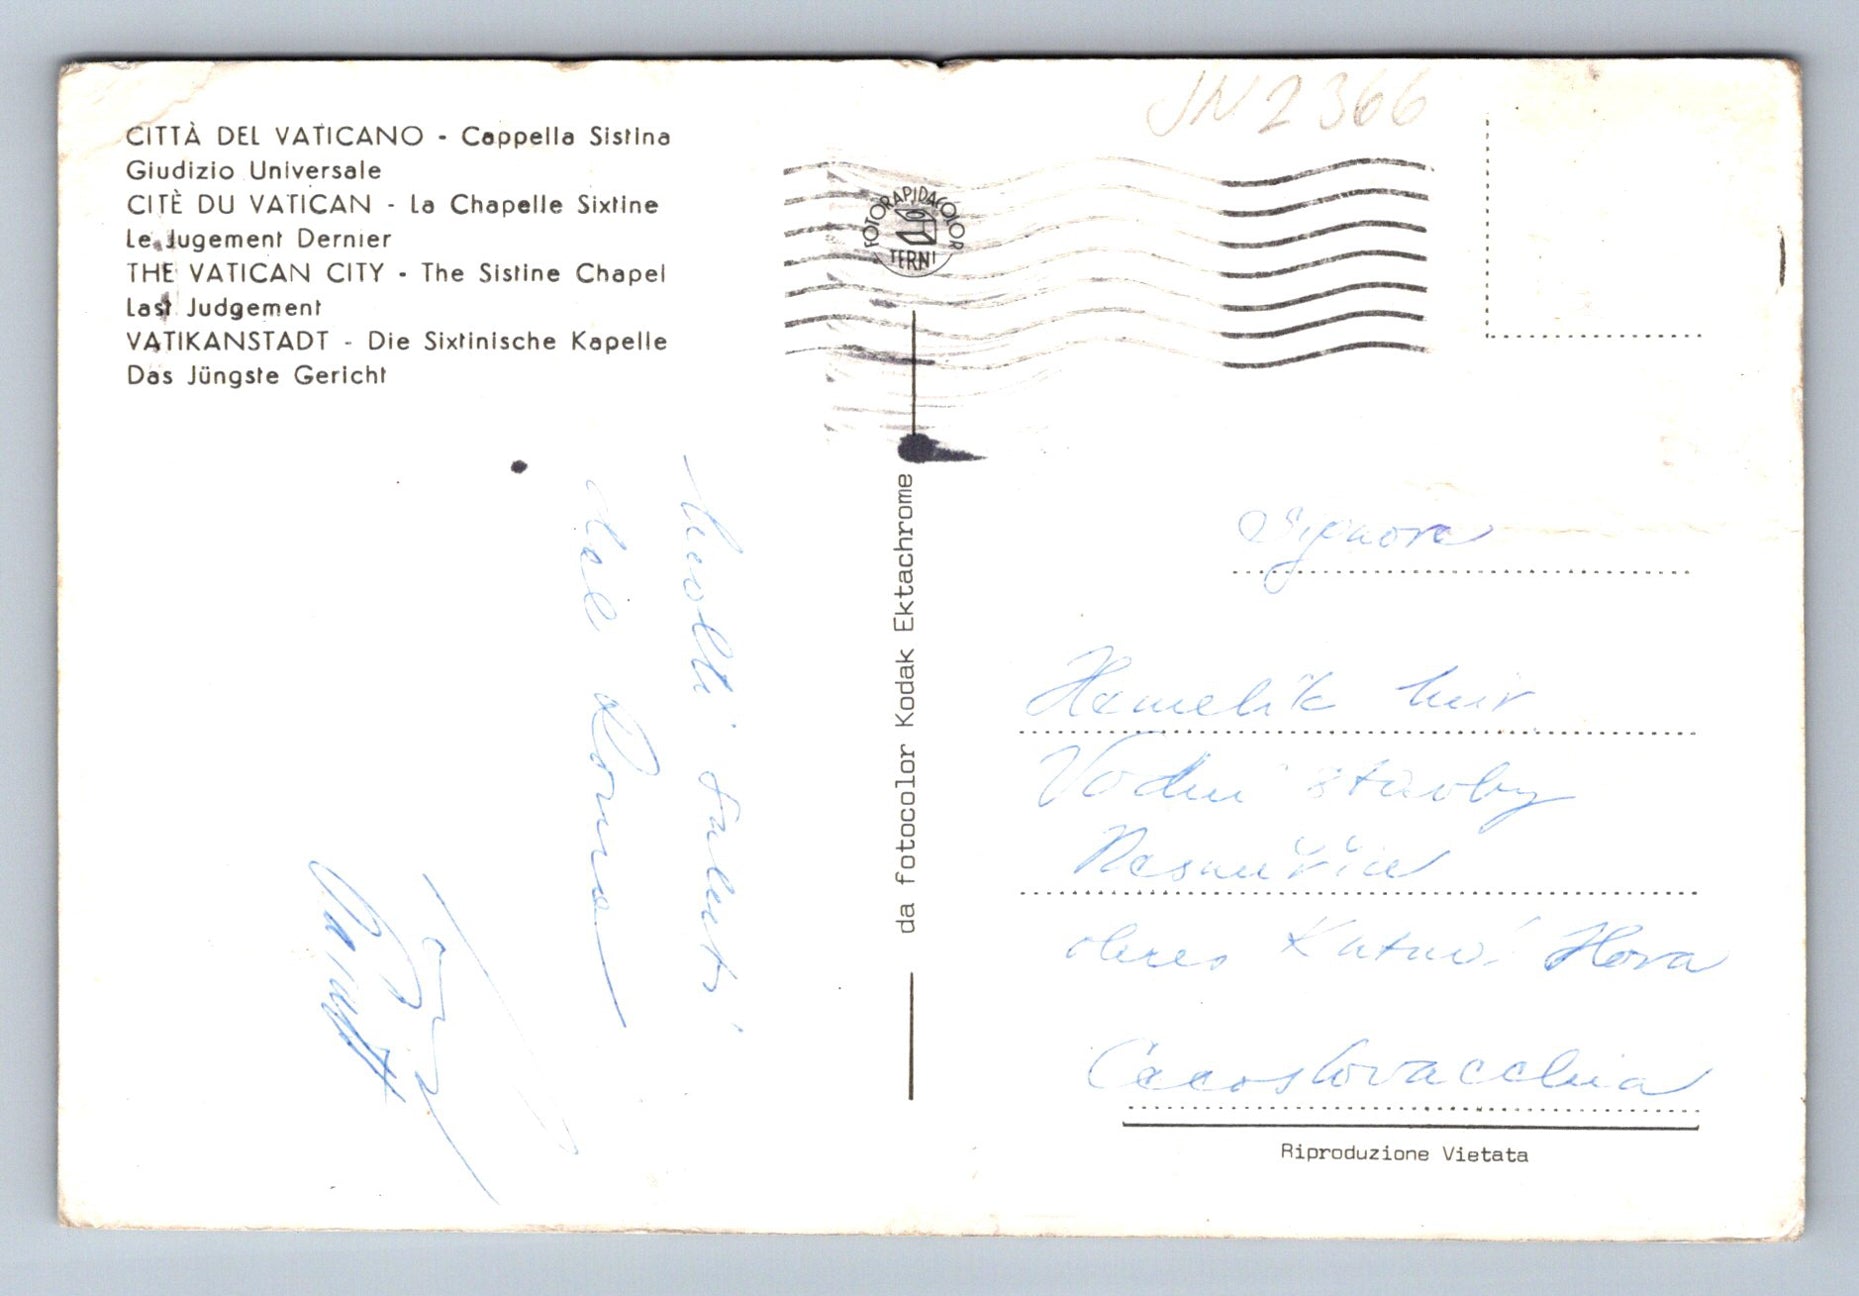 JN2366
CITTÀ DEL VATICANO - Cappella Sistina
Giudizio Universale
CITÈ DU VATICAN - La Chapelle Sixtine
Le Jugement Dernier
THE VATICAN CITY - The Sistine Chapel
Last Judgement
VATIKANSTADT - Die Sixtinische Kapelle
Das Jüngste Gericht
FOTORAPIDACOLOR
TERNI
da fotocolor Kodak Ektachrome
Molti saluti
da Roma
Signora
Vodní stavby
okres Kutná Hora
Cecoslovacchia
Riproduzione Vietata